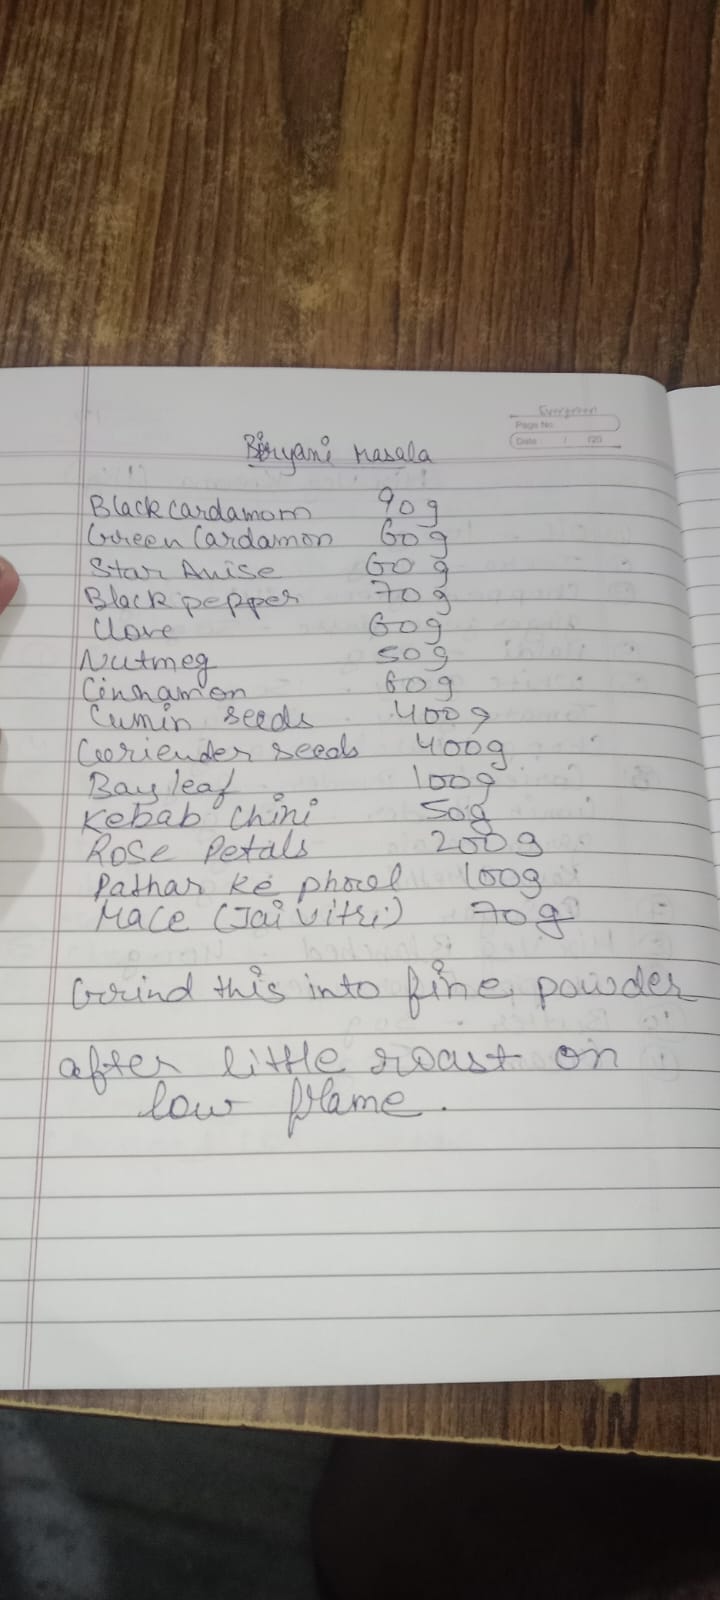 Evergreen
Page No.
Date : / /20
Biryani Masala
Black cardamom 90g
Green Cardamon 60g
Star Anise 60g
Black pepper 70g
Clove 60g
Nutmeg 50g
Cinnamon 60g
Cumin seeds 400g
Coriender seeds 400g
Bay leaf 100g
Kebab Chini 50g
Rose Petals 200g
Pathar ke phool 100g
Mace (Jai Vitri) 70g
Grind this into fine powder
after little roast on
low flame.